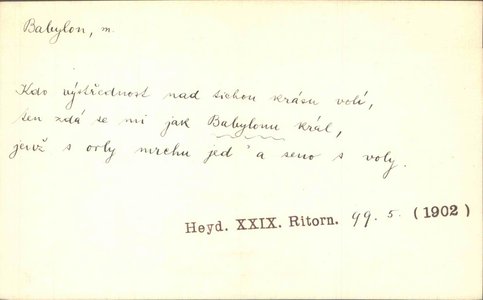 Babylon, m.
Kdo výstřednost nad tichou krásu volí,
ten zdá se mi jak Babylonu král,
jenž s orly mrchu jed' a seno s voly.
Heyd. XXIX. Ritorn. 49. 5. (1902)